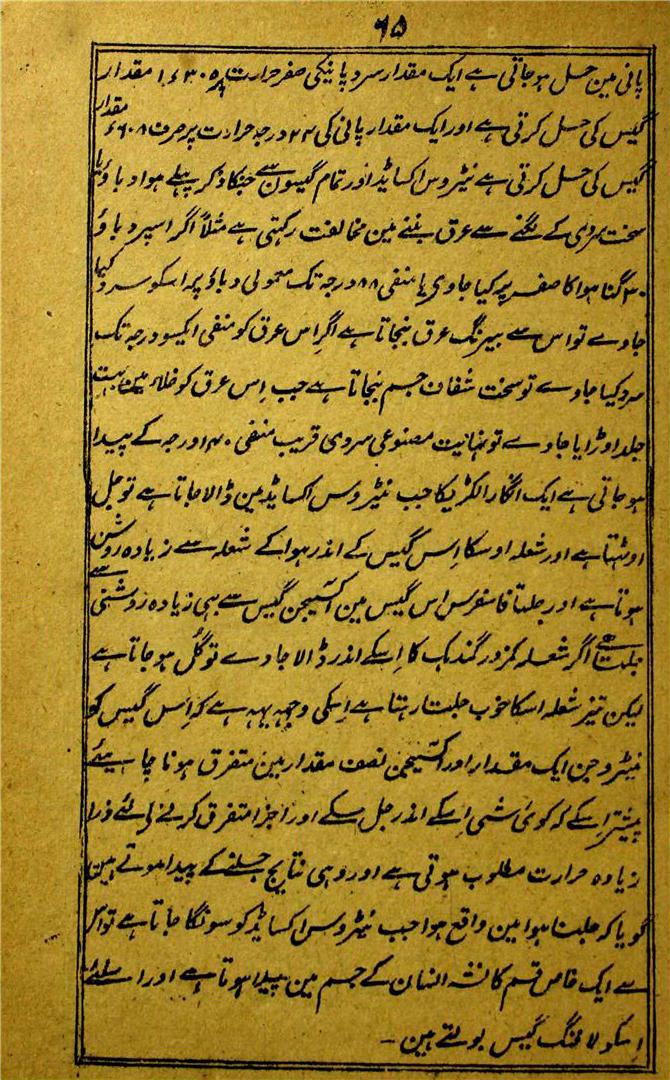 ۶۵
پانی مین حل ہوجاتی ہے ایک مقدار سرد پانیکی صفر حرارت پر ۱٫۳۰۵ مقدار
گیس کی حل کرتی ہے اور ایک مقدار پانی کی ۲۴ درجہ حرارت پر صرف ۶۰۸ مقدار
گیس کی حل کرتی ہے نیٹروس اکسایڈ اور تمام گیسون سے جنکا ذکر پہلے ہوا دباؤ یا
سخت سردی کے لگنے سے عرق بننے مین مخالفت رکہتی ہے مثلاً اگر اسپر دباؤ
۳۰ گنا ہوا کا صفر پر کیا جاوی یا منفی ۸۸ درجہ تک معمولی دباؤ پر اسکو سرد کیا
جاوے تو اس سے بیرنگ عرق بنجاتا ہے اگر اس عرق کو منفی ایکسو درجہ تک
سرد کیا جاوے تو سخت شفان جسم بنجاتا ہے جب اِس عرق کو خلاء مین بہت
جلد اوڑایا جاوے تو نہایت مصنوعی سردی قریب منفی ۱۴۰ درجہ کے پیدا
ہوجاتی ہے ایک انگارا لکڑیکا جب نیٹروس اکسایڈ مین ڈالا جاتا ہے تو جل
اوٹہتا ہے اور شعلہ اوسکا اِس گیس کے اندر ہوا کے شعلہ سے زیادہ روشن
ہوتا ہے اور جلتا فاسفرس اس گیس مین آکسیجن گیس سے بہی زیادہ روشنی سے
جلتا ہے اگر شعلہ کمزور گندہک کا اِسکے اندر ڈالا جاوے تو گُل ہوجاتا ہے
لیکن تیز شعلہ اسکا خوب جلتا رہتا ہے اِسکی وجہ یہہ ہے کہ اِس گیس کو
نیٹروجن ایک مقدار اور آکسیجن نصف مقدار مین متفرق ہونا چاہیئے
پیشتر اِسکے کہ کوئی شی اِسکے اندر جل سکے اور اجزا متفرق کرنے کے لئے ذرا
زیادہ حرارت مطلوب ہوتی ہے اور وہی نتایج جلنے کے پیدا ہوتے ہین
گویا کہ جلنا ہوا مین واقع ہوا جب نیٹروس اکسایڈ کو سونگا جاتا ہے تو اس
سے ایک خاص قسم کا نشہ انسان کے جسم مین پیدا ہوتا ہے اور اسلئے
اِسکو لافنگ گیس بولتے ہین –